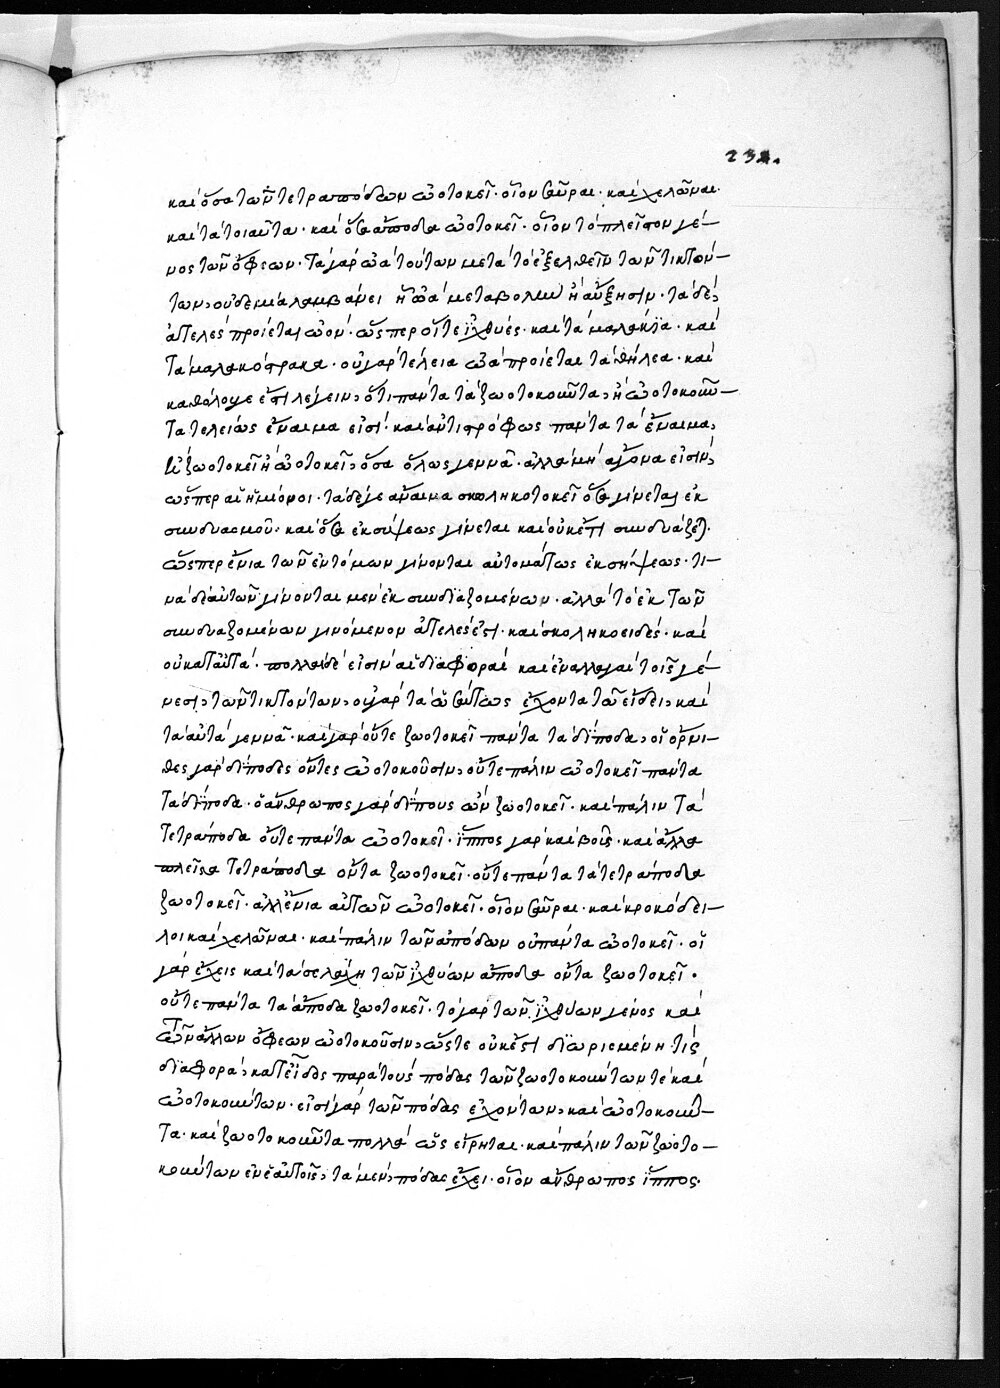 232.
καὶ ὅσα τῶν τετραπόδων ὠοτοκεῖ· οἷον σαῦραι· καὶ χελῶναι·
καὶ τὰ τοιαῦτα· καὶ ὅσα ἄποδα ὠοτοκεῖ· οἷον τὸ πλεῖστον γέ-
νος τῶν ὄφεων· τὰ γὰρ ὠὰ τούτων μετὰ τὸ ἐξελθεῖν τῶν τικτόν-
των, οὐδεμίαν λαμβάνει μεταβολὴν ἢ αὔξησιν· τὰ δὲ,
ἀτελὲς προΐεται ὠόν· ὥσπερ οἵ τε ἰχθύες· καὶ τὰ μαλάκια· καὶ
τὰ μαλακόστρακα· οὐ γὰρ τέλεια ὠὰ προΐεται τὰ θήλεα· καὶ
καθόλου ἔστι λέγειν, ὅτι πάντα τὰ ζωοτοκοῦντα, ἢ ὠοτοκοῦν-
τα τελείως ἔναιμα εἰσί· καὶ ἀντιστρόφως πάντα τὰ ἔναιμα,
ἢ ζωοτοκεῖ ἢ ὠοτοκεῖ, ὅσα ὅλως γεννᾶ· ἀλλὰ μὴ ἄγονα εἰσὶν,
ὥσπερ αἱ ἡμίονοι· τὰ δέ γε ἄναιμα σκωληκοτοκεῖ ὅσα γίνεται ἐκ
συνδυασμοῦ· καὶ ὅσα ἐκ σήψεως γίνεται καὶ οὐκ ἔτι συνδυάζεται·
ὥσπερ ἔνια τῶν ἐντόμων γίνονται αὐτομάτως ἐκ σήψεως· τι-
νὰ δὲ αὐτῶν γίνονται μὲν ἐκ συνδυαζομένων· ἀλλὰ τὸ ἐκ τῶν
συνδυαζομένων γινόμενον ἀτελές ἐστι· καὶ σκοληκοειδές· καὶ
οὐ κατ' αὐτά· πολλαὶ δέ εἰσιν αἱ διαφοραὶ καὶ ἐναλλαγαὶ τοῖς γέ-
νεσι, τῶν τικτόντων, οὐ γὰρ τὰ ὡσαύτως ἔχοντα τῶ εἴδει, καὶ
τὰ αὐτὰ γεννᾶ· καὶ γὰρ οὔτε ζωοτοκεῖ πάντα τὰ δίποδα, οἱ ὄρνι-
θες γὰρ δίποδες ὄντες ὠοτοκοῦσιν, οὔτε πάλιν ὠοτοκεῖ πάντα
τὰ δίποδα· ὁ ἄνθρωπος γὰρ δίπους ὢν ζωοτοκεῖ· καὶ πάλιν τὰ
τετράποδα οὔτε πάντα ὠοτοκεῖ· ἵππος γὰρ καὶ βοῦς· καὶ ἄλλα
πλεῖστα τετράποδα ὄντα ζωοτοκεῖ· οὔτε πάντα τὰ τετράποδα
ζωοτοκεῖ· ἀλλ' ἔνια αὐτῶν ὠοτοκεῖ· οἷον σαῦραι· καὶ κροκόδει-
λοι καὶ χελῶναι· καὶ πάλιν τῶν ἀπόδων οὐ πάντα ὠοτοκεῖ· οἱ
γὰρ ἔχεις καὶ τὰ σελάχη τῶν ἰχθύων ἄποδα ὄντα ζωοτοκεῖ·
οὔτε πάντα τὰ ἄποδα ζωοτοκεῖ· τὸ γὰρ τῶν ἰχθύων γένος καὶ
τῶν ἄλλων ὄφεων ὠοτοκοῦσιν, ὥστε οὐκ ἔστι διωρισμένη τὶς
διαφορὰ, κατ' εἶδος παρὰ τοὺς πόδας τῶν ζωοτοκούντων τὲ καὶ
ὠοτοκούντων· εἰσὶ γὰρ τῶν πόδας ἐχόντων, καὶ ὠοτοκοῦν-
τα· καὶ ζωοτοκοῦντα πολλὰ ὡς εἴρηται· καὶ πάλιν τῶν ζωοτο-
κούντων ἐν ἑαυτοῖς, τὰ μὲν, πόδας ἔχει· οἷον ἄνθρωπος ἵππος·